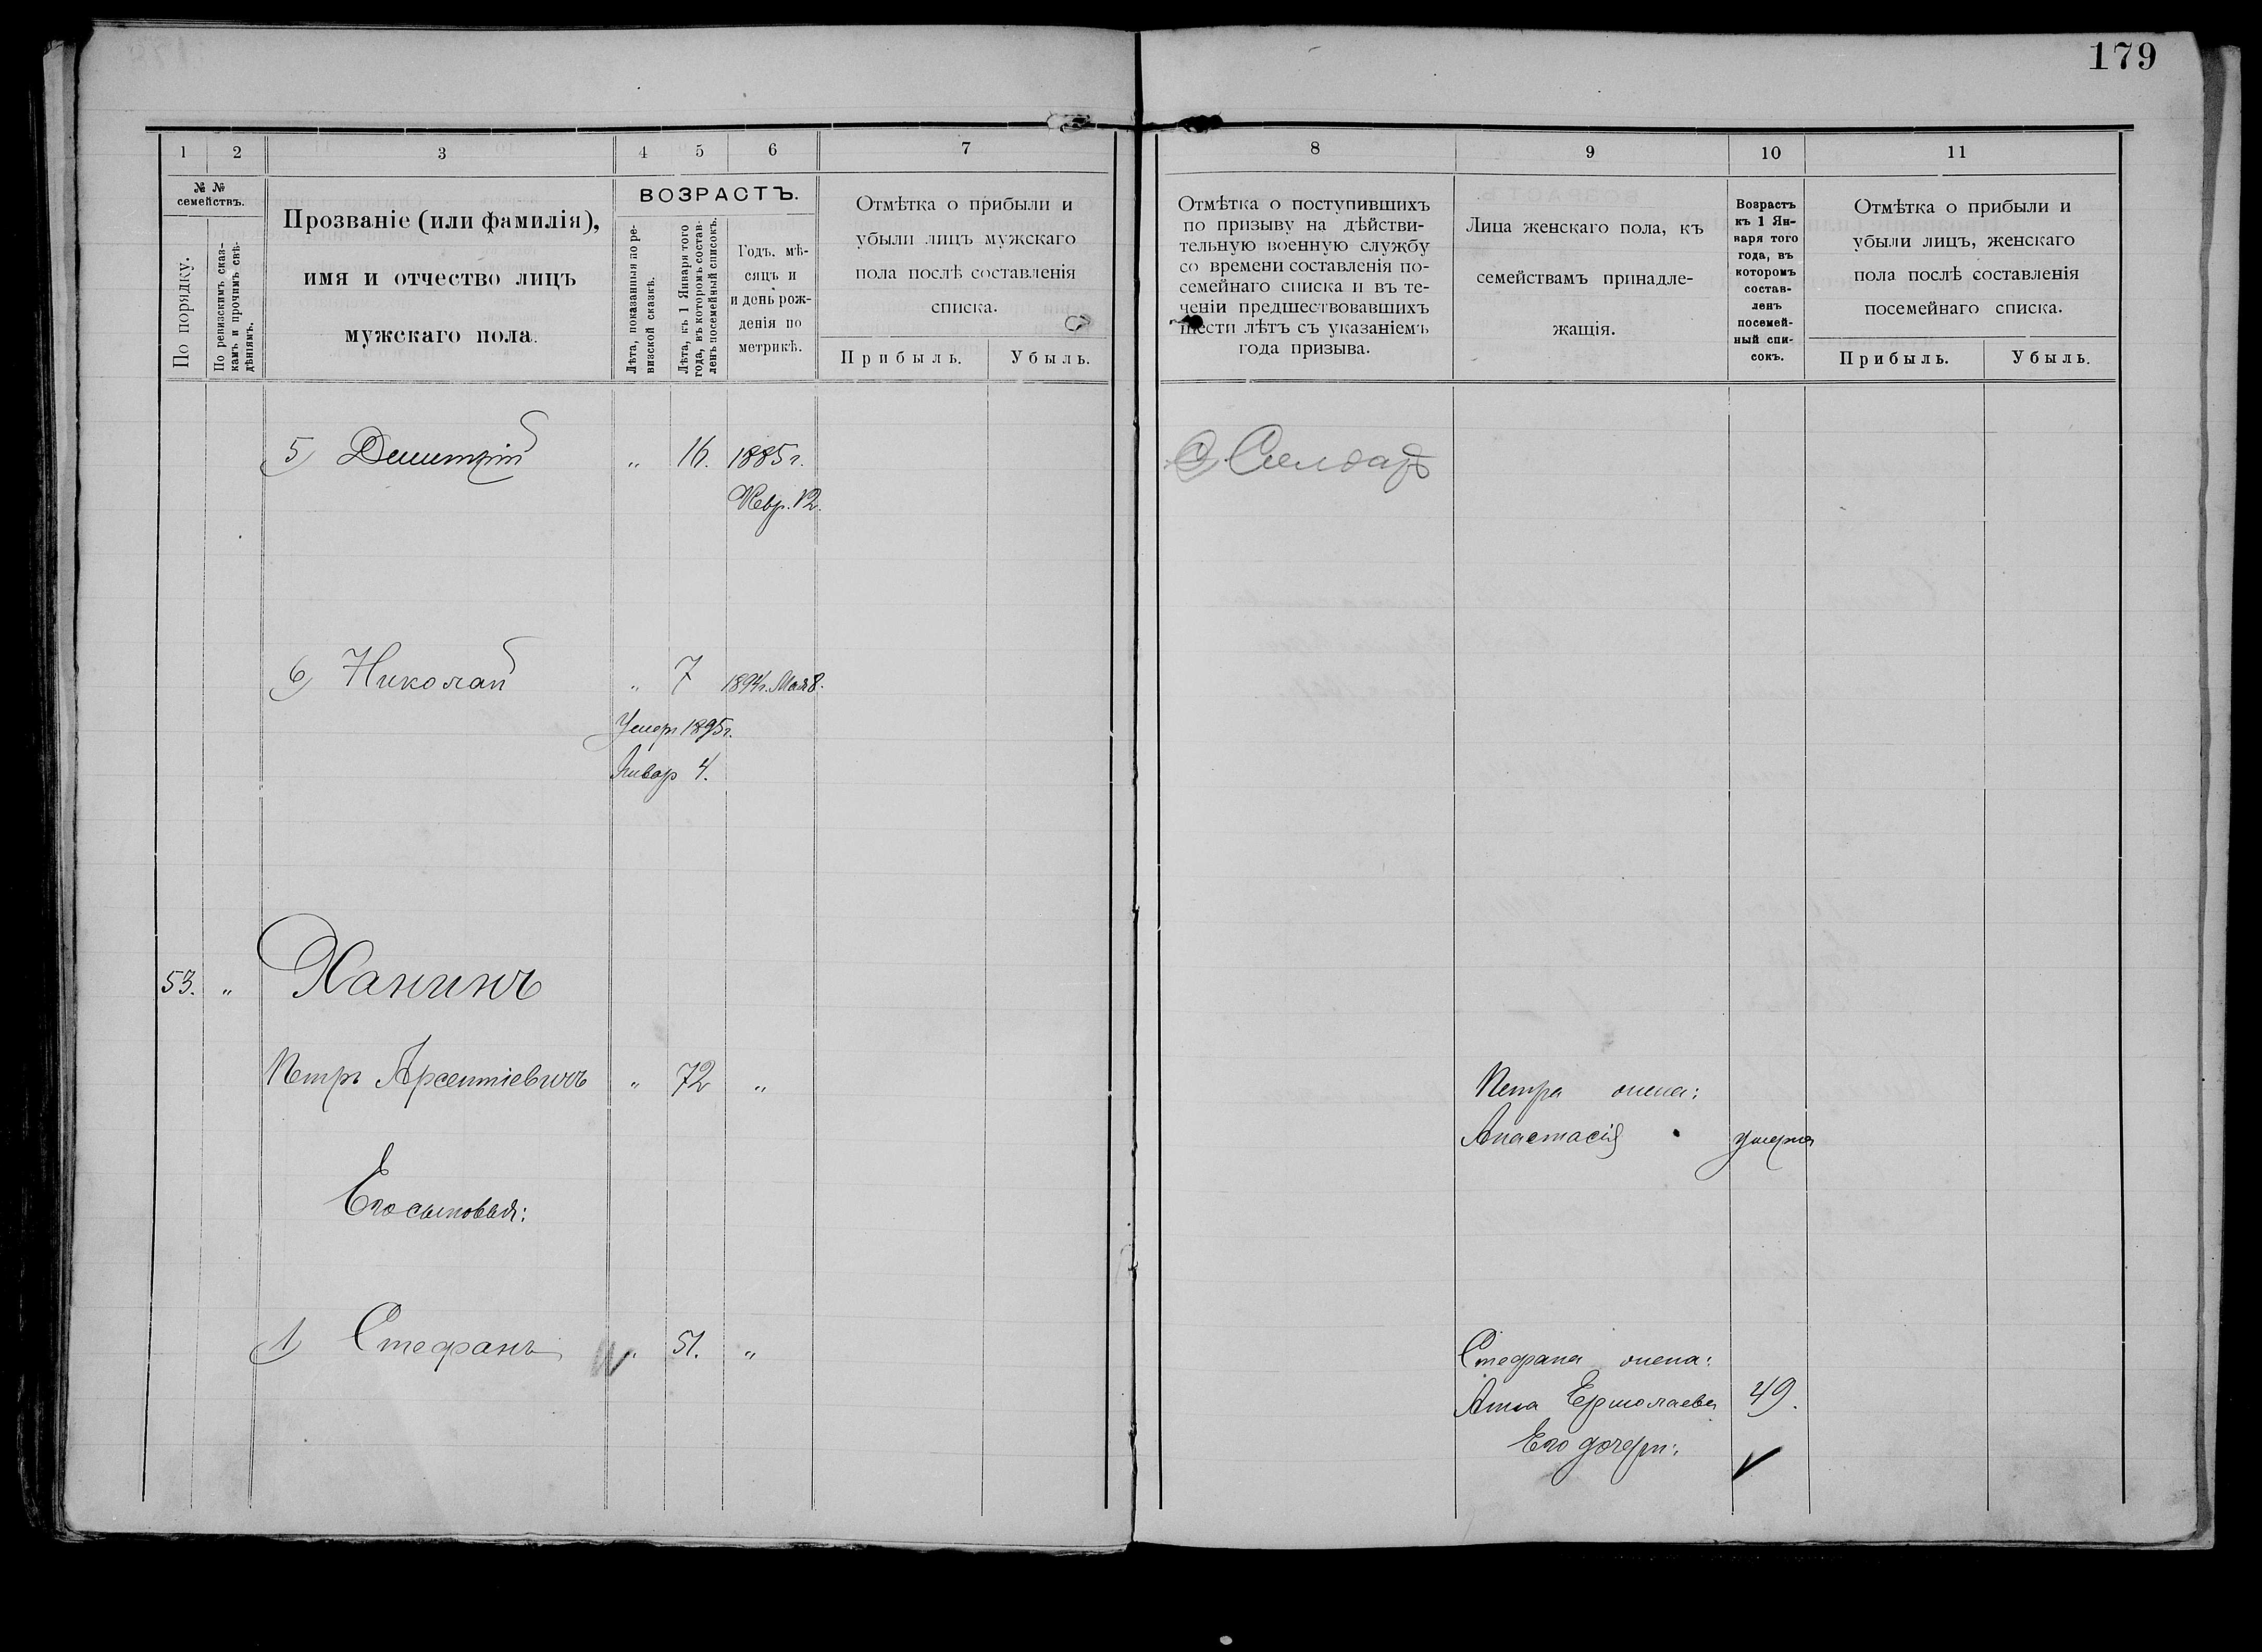 179
1 2 3 4 5 6 7
№ №
семействъ.
По порядку.
По ревизскимъ сказ-
камъ и прочимъ свѣ-
дѣніямъ.
Прозваніе (или фамилія),
имя и отчество лицъ
мужскаго пола.
ВОЗРАСТЪ.
Лѣта, показанныя по ре-
визской сказкѣ.
Лѣта, къ 1 Января того
года, въ которомъ состав-
ленъ посемейный списокъ.
Годъ, мѣ-
сяцъ и
и день рож-
денія по
метрикѣ.
Отмѣтка о прибыли и
убыли лицъ мужскаго
пола послѣ составленія
списка.
Прибыль. Убыль.
5) Димитрій „ 16. 1885 г.
Февр. 12.
6) Николай „ 7 1894 г. Мая 8.
Умеръ 1895 г.
Январ 4.
53. „ Ханинъ
Петръ Арсентіевичъ „ 72 „
Его сыновья:
1) Стефанъ „ 51. „
8 9 10 11
Отмѣтка о поступившихъ
по призыву на дѣйстви-
тельную военную службу
со времени составленія по-
семейнаго списка и въ те-
ченіи предшествовавшихъ
шести лѣтъ съ указаніемъ
года призыва.
Лица женскаго пола, къ
семействамъ принадле-
жащія.
Возрастъ
къ 1 Ян-
варя того
года, въ
которомъ
состав-
ленъ
посемей-
ный спи-
сокъ.
Отмѣтка о прибыли и
убыли лицъ, женскаго
пола послѣ составленія
посемейнаго списка.
Прибыль. Убыль.
Петра жена:
Анастасія умерла
Стефана жена:
Анна Ермолаева 49.
Его дочери: